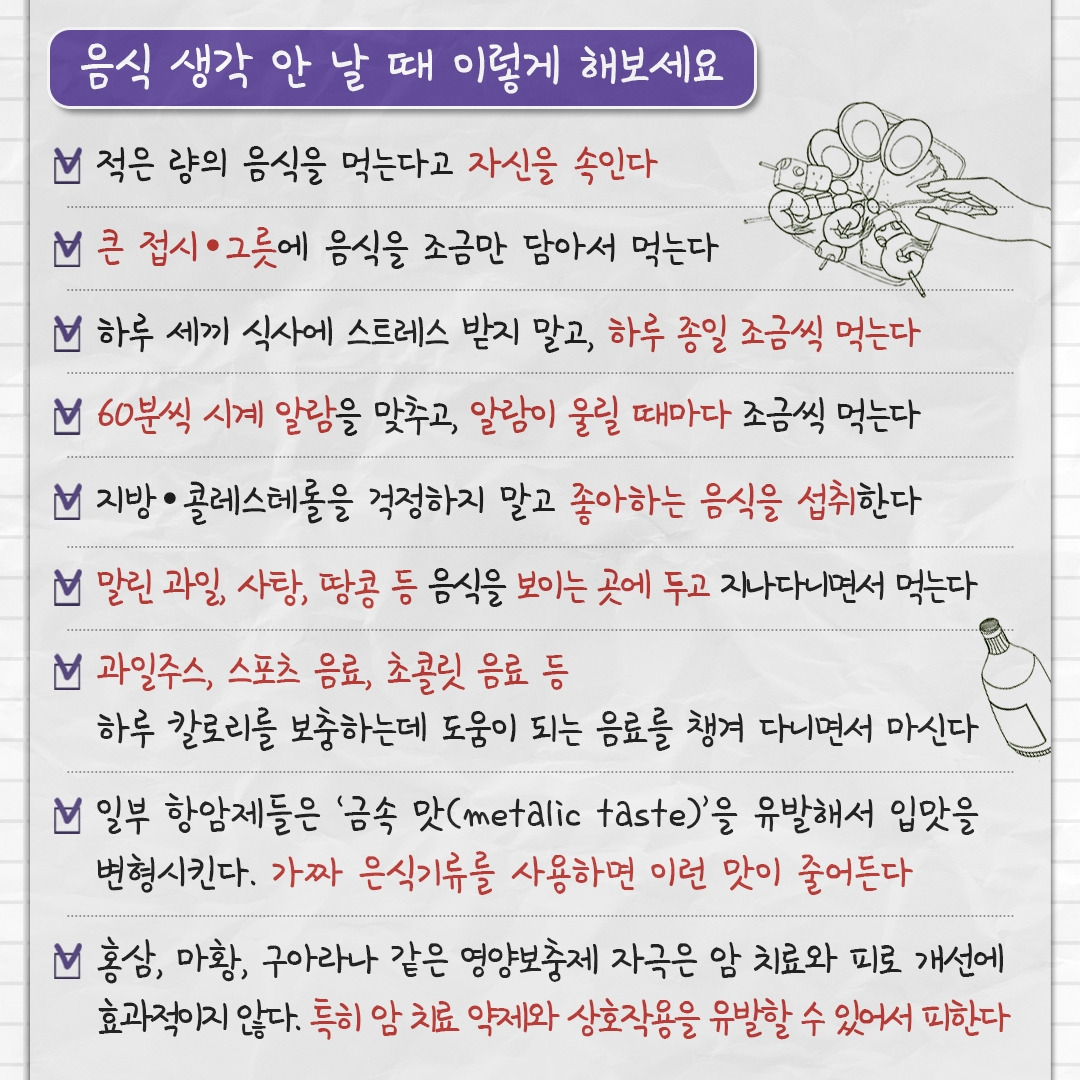 음식 생각 안 날 때 이렇게 해보세요
적은 량의 음식을 먹는다고 자신을 속인다
큰 접시•그릇에 음식을 조금만 담아서 먹는다
하루 세끼 식사에 스트레스 받지 말고, 하루 종일 조금씩 먹는다
60분씩 시계 알람을 맞추고, 알람이 울릴 때마다 조금씩 먹는다
지방•콜레스테롤을 걱정하지 말고 좋아하는 음식을 섭취한다
말린 과일, 사탕, 땅콩 등 음식을 보이는 곳에 두고 지나다니면서 먹는다
과일주스, 스포츠 음료, 초콜릿 음료 등
하루 칼로리를 보충하는데 도움이 되는 음료를 챙겨 다니면서 마신다
일부 항암제들은 ‘금속 맛(metalic taste)’을 유발해서 입맛을
변형시킨다. 가짜 은식기류를 사용하면 이런 맛이 줄어든다
홍삼, 마황, 구아라나 같은 영양보충제 자극은 암 치료와 피로 개선에
효과적이지 않다. 특히 암 치료 약제와 상호작용을 유발할 수 있어서 피한다